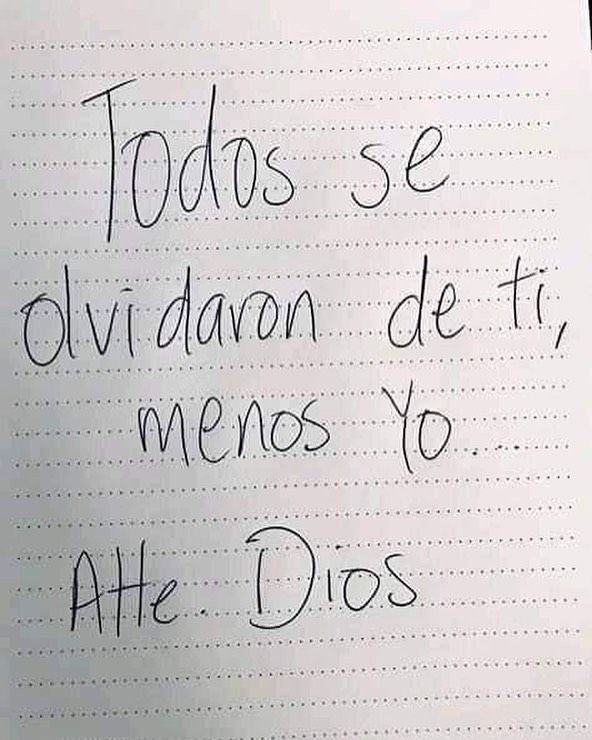 Todos se
olvidaron de ti,
menos Yo....
Atte. Dios